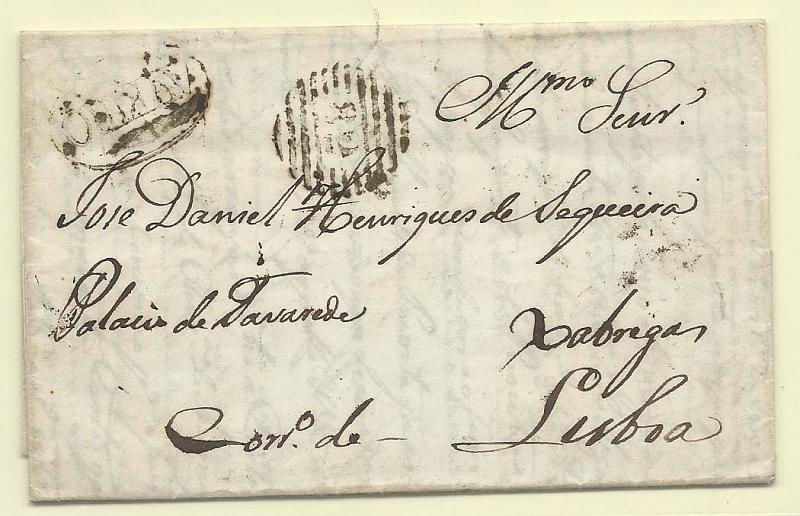 Illmo Senr.
Jose Daniel Henriques de Sequeira
Palacio de Tavarede
Xabregas
Corro. de — Lisboa